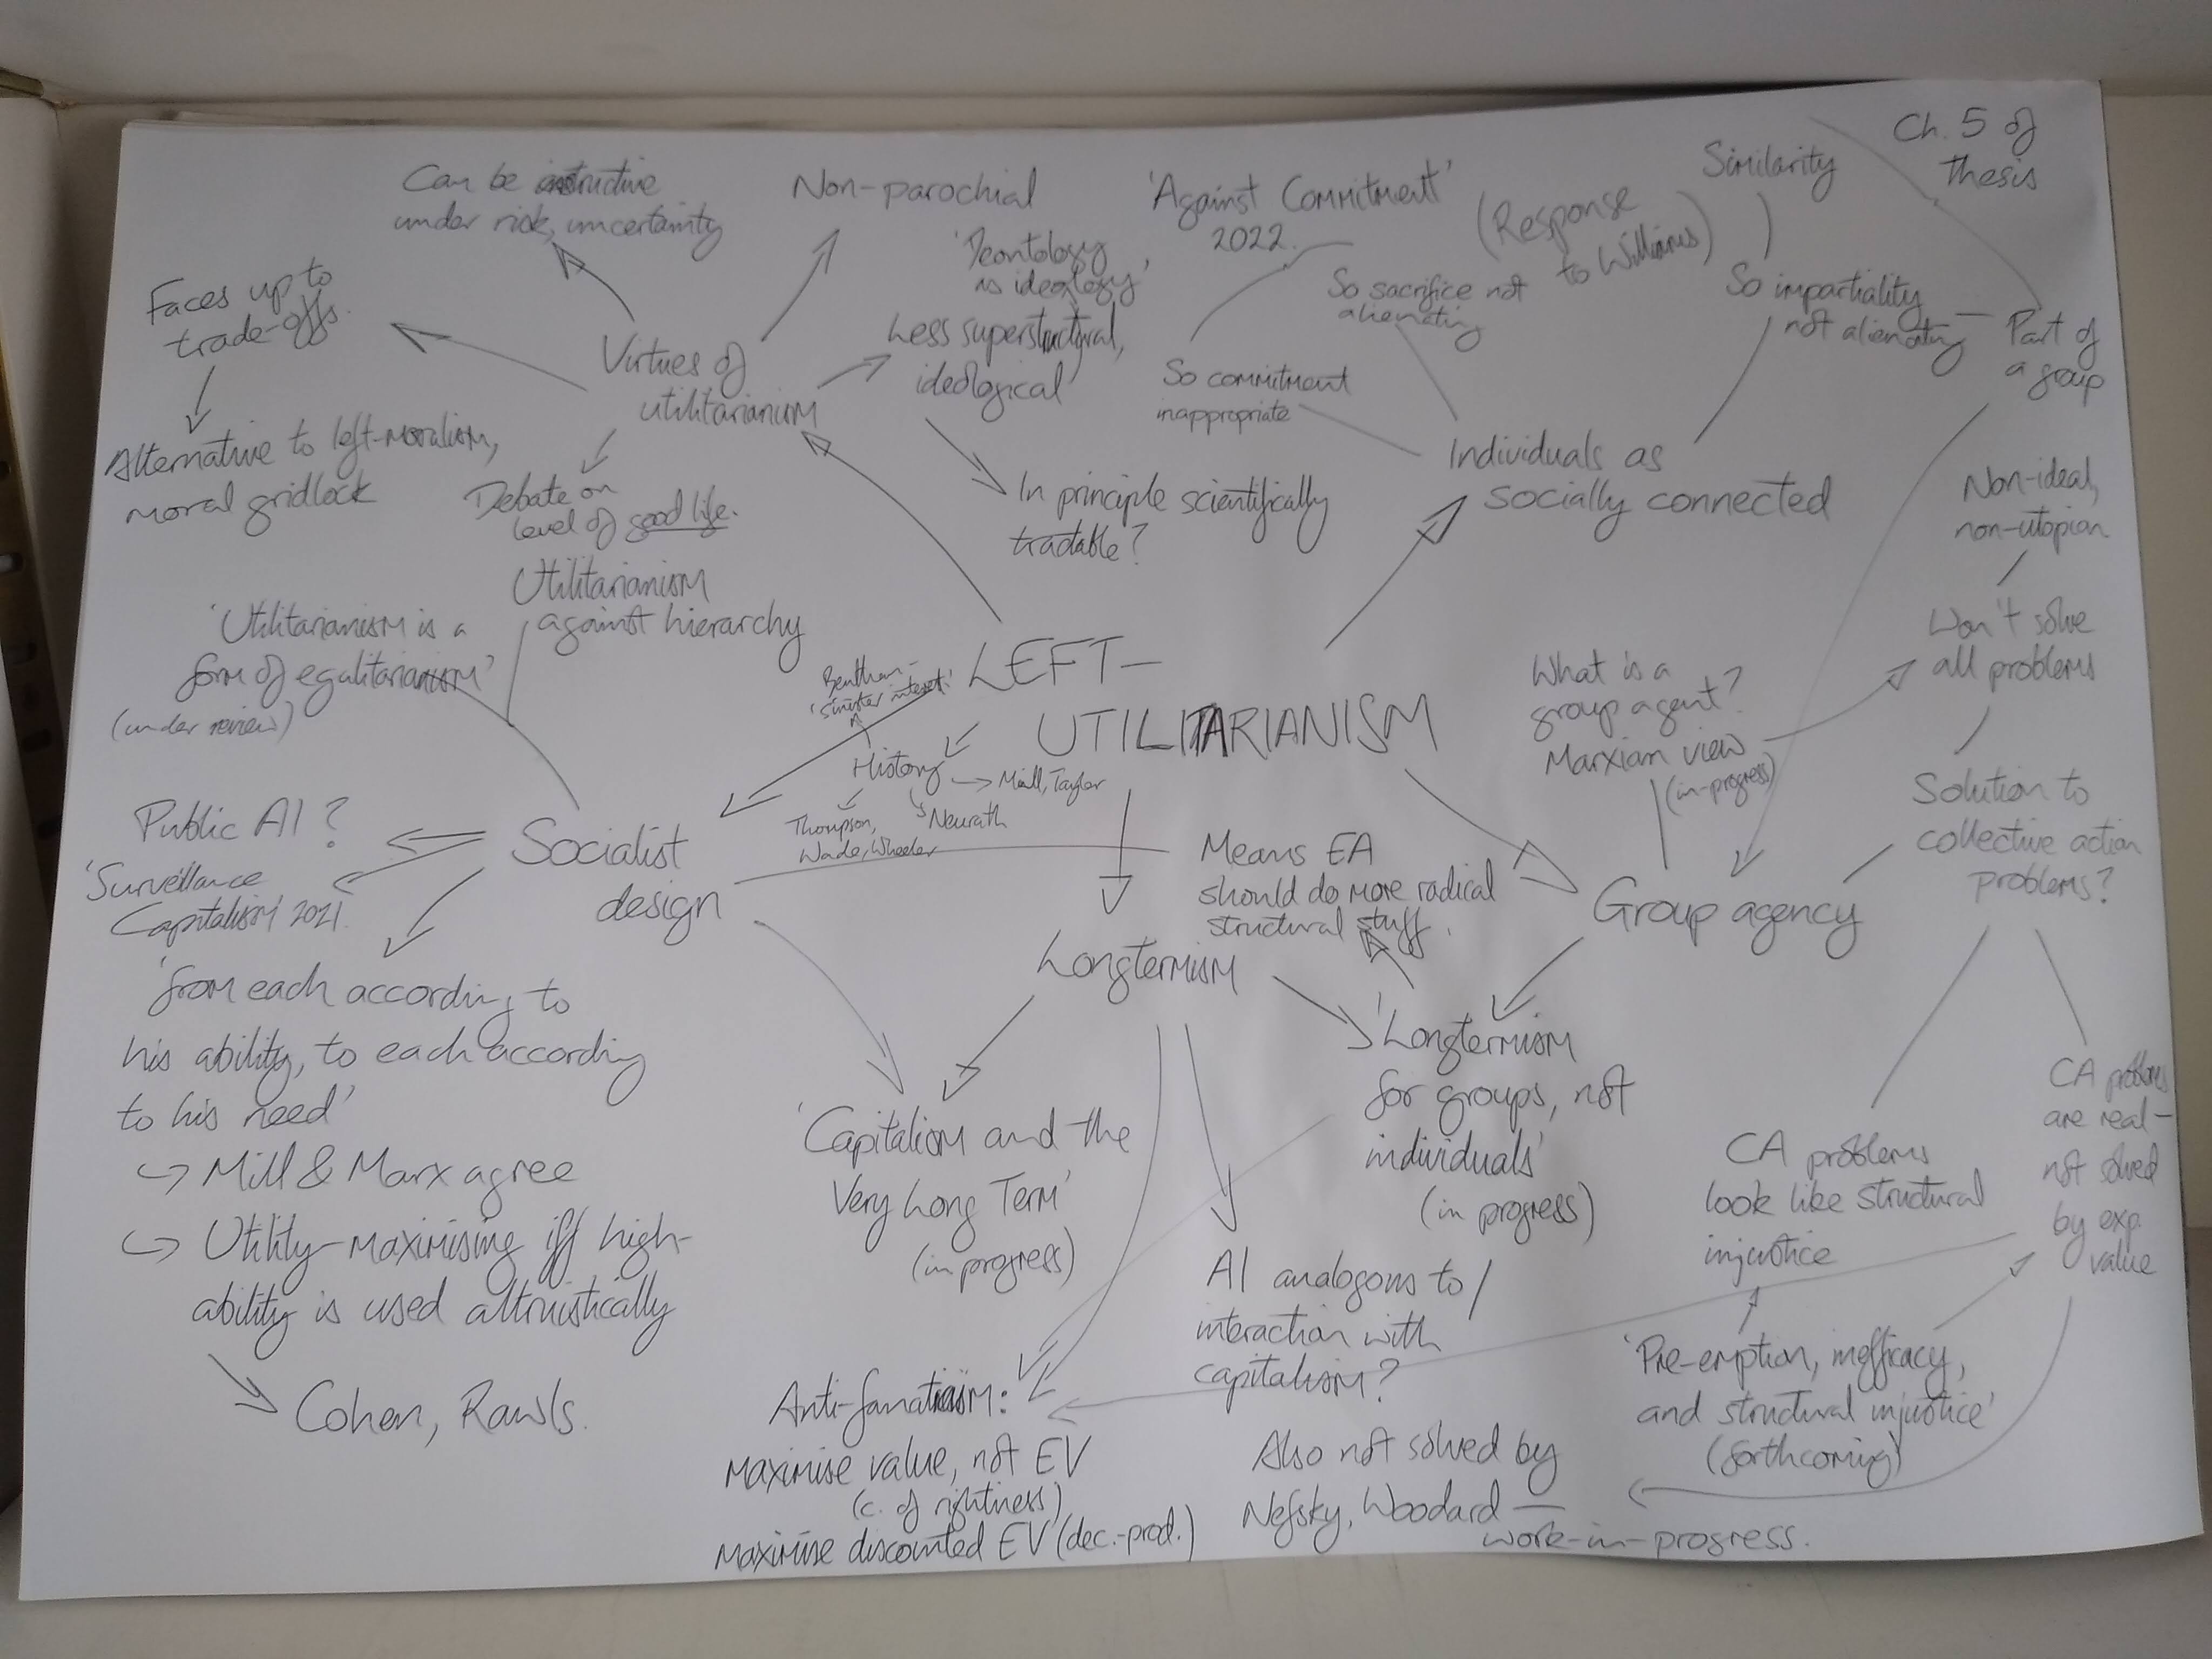 Ch. 5 of
thesis
Can be instructive
under risk, uncertainty
Non-parochial
'Against Commitment'
2022.
(Response
to Williams)
Similarity
'Deontology
as ideology'
Less superstructural,
ideological
So sacrifice not
alienating
So impartiality
not alienating
Part of
a group
Faces up to
trade-offs.
Alternative to left-moralism,
moral gridlock
Virtues of
utilitarianism
So commitment
inappropriate
Debate on
level of good life.
In principle scientifically
tradable?
Individuals as
socially connected
Non-ideal,
non-utopian
Utilitarianism
against hierarchy
'Utilitarianism is a
form of egalitarianism'
(under review)
Bentham -
'sinister interest'
LEFT-
UTILITARIANISM
History
Mill, Taylor
Thompson,
Wade, Wheeler
Neurath
What is a
group agent?
Marxian view
(in-progress)
Won't solve
all problems
Solution to
collective action
problems?
Public AI?
'Surveillance
Capitalism' 2021.
Socialist
design
Means EA
should do more radical
structural stuff.
Group agency
Longtermism
'from each according to
his ability, to each according
to his need'
↪ Mill & Marx agree
↪ Utility-maximising iff high-
ability is used altruistically
Cohen, Rawls.
'Capitalism and the
Very Long Term'
(in progress)
'Longtermism
for groups, not
individuals'
(in progress)
CA problems
look like structural
injustice
CA problems
are real -
not solved
by exp.
value
AI analogous to /
interaction with
capitalism?
'Pre-emption, inefficacy,
and structural injustice'
(forthcoming)
Anti-fanaticism:
maximise value, not EV
(c. of rightness)
maximise discounted EV (dec.-prod.)
Also not solved by
Nefsky, Woodard —
work-in-progress.